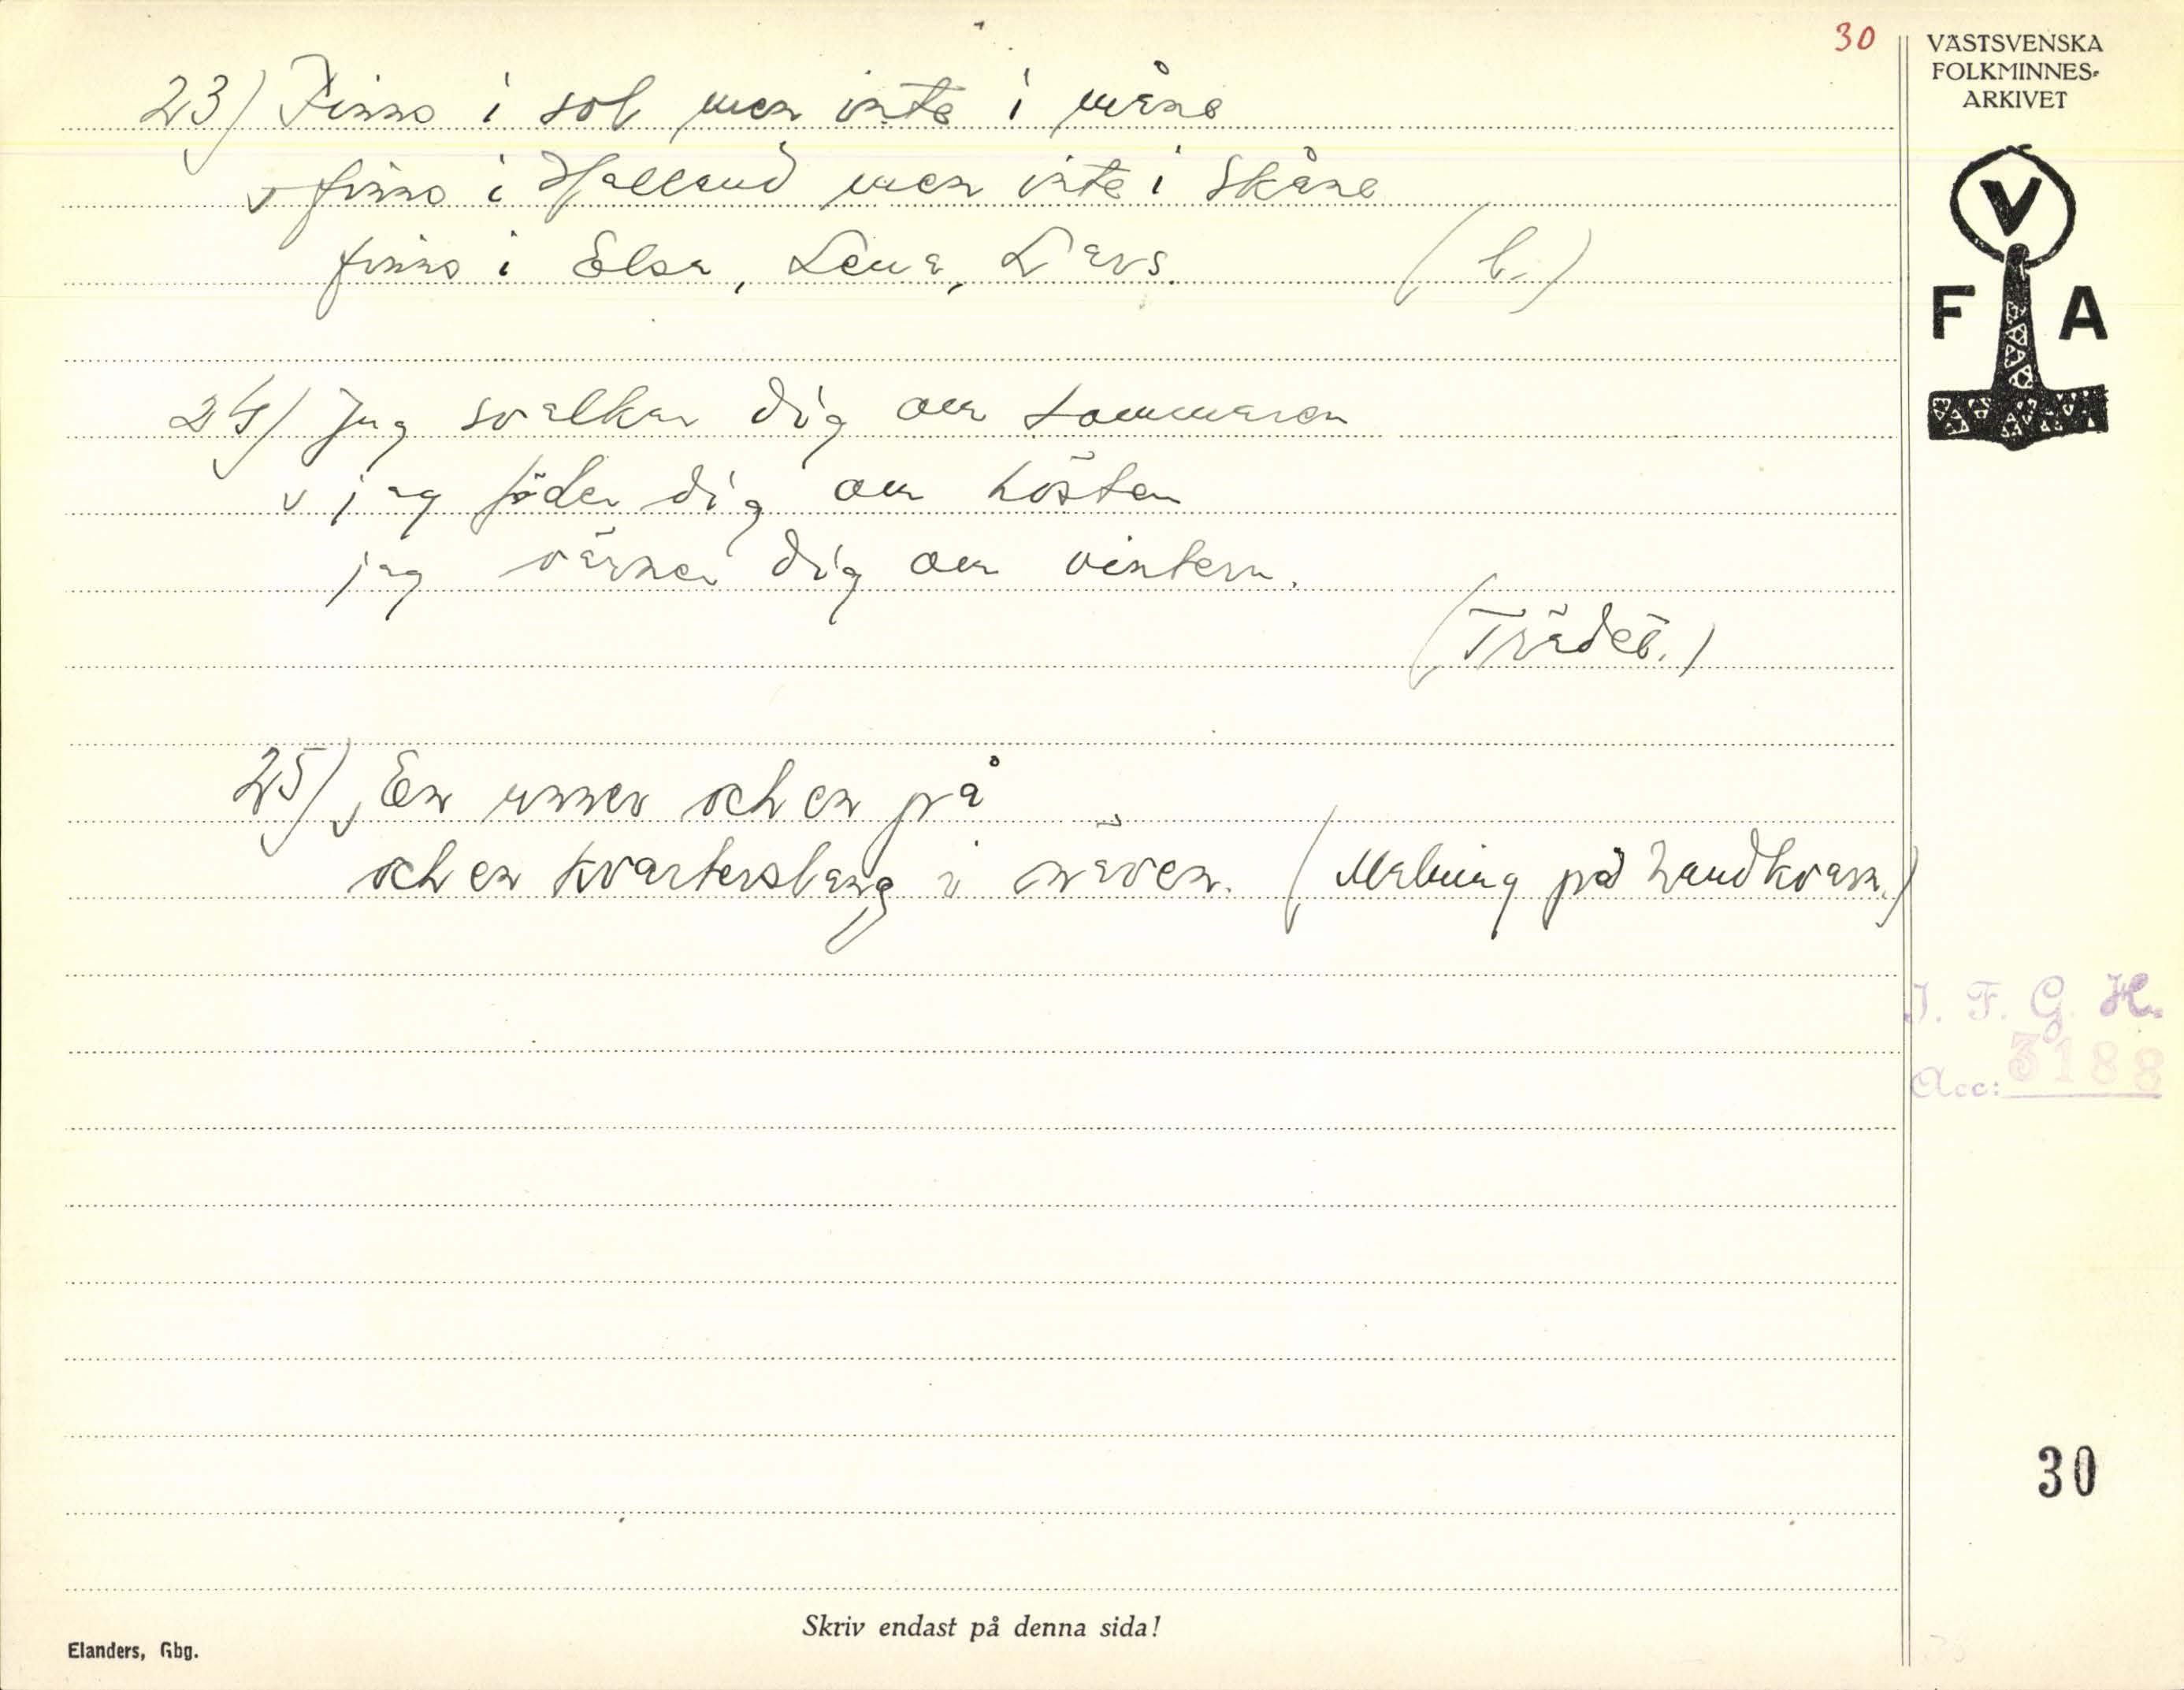 30
VÄSTSVENSKA
FOLKMINNES-
ARKIVET
V
F A
23) Finns i sol men inte i måne
v finns i Halland men inte i Skåne
finns i Elsa, Lena, Lars. (l.)
24) Jag svalkar dig om sommaren
v jag föder dig om hösten
jag värmer dig om vintern.
(Trädet.)
25) v En unner och en på
och en kvarterslang i näven. (Malning på handkvarn.)
I. F. G. H.
Acc: 3188
30
Skriv endast på denna sida!
Elanders, Gbg.